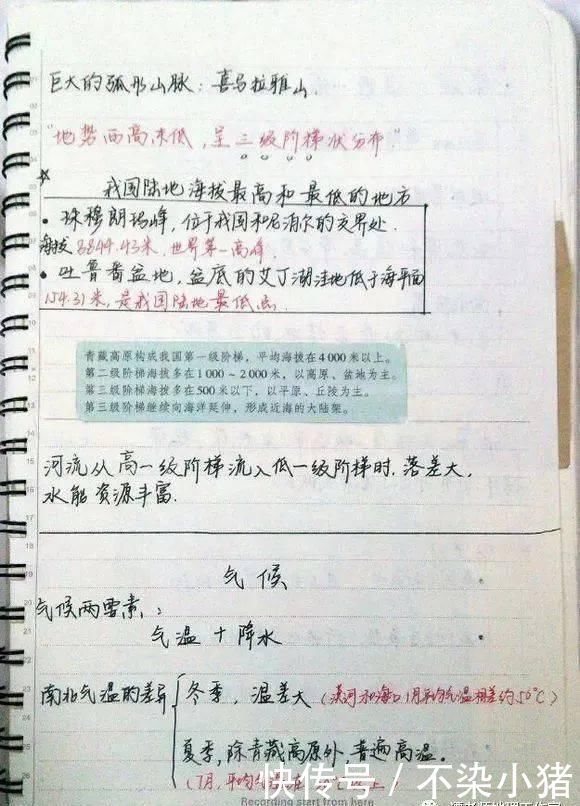 巨大的弧形山脉：喜马拉雅山.
"地势西高东低，呈三级阶梯状分布"
我国陆地海拔最高和最低的地方
• 珠穆朗玛峰，位于我国和尼泊尔的交界处.
海拔8844.43米，世界第一高峰.
• 吐鲁番盆地，盆底的艾丁湖洼地低于海平面
154.31米，是我国陆地最低点.
青藏高原构成我国第一级阶梯，平均海拔在4 000米以上。
第二级阶梯海拔多在1 000～2 000米，以高原、盆地为主。
第三级阶梯海拔多在500米以下，以平原、丘陵为主。
第三级阶梯继续向海洋延伸，形成近海的大陆架。
河流从高一级阶梯流入低一级阶梯时，落差大，
水能资源丰富.
气候
气候两要素：
气温＋降水
南北气温的差异
冬季，温差大（漠河和海口1月平均气温相差约50℃）
夏季，除青藏高原外普遍高温。
（7月，平均气
快传号／不染小猪
Recording start from here